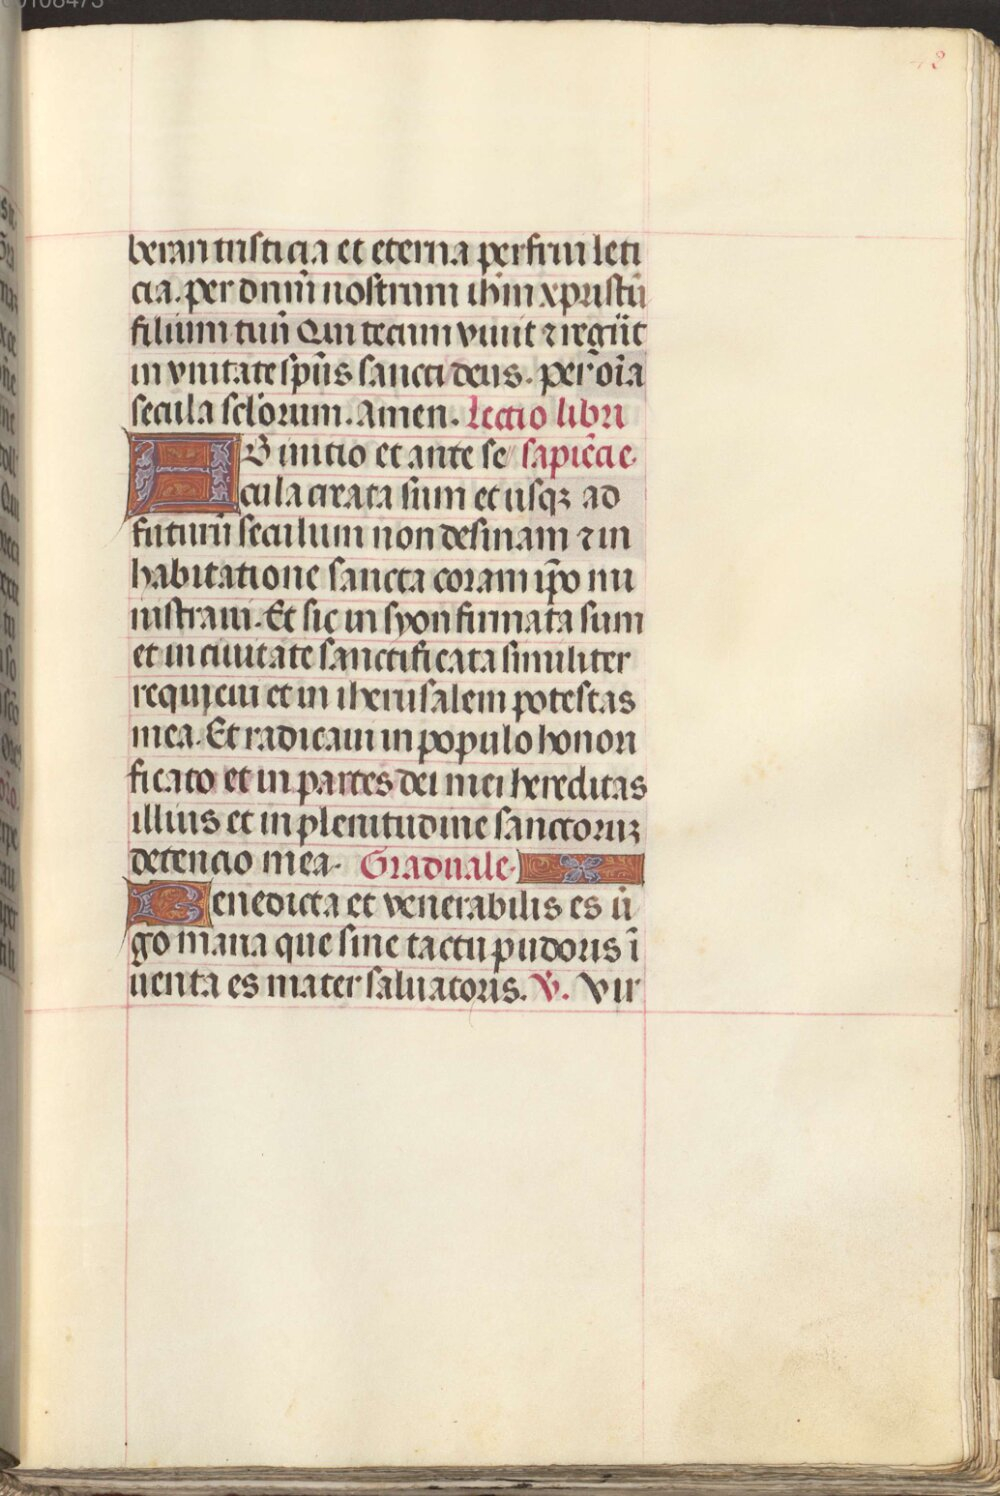 42
berari tristicia et eterna perfrui leti
cia. per dnm̄ nostrum ihm xpristū
filium tuū Qui tecum viuit ⁊ regn̄t
in vnitate sp̄us sancti deus. per oīa
secula sclorum. Amen. Lectio libri
AB initio et ante se sapiēcie
cula creata sum et usqꝫ ad
futurū seculum non desinam ⁊ in
habitatione sancta coram ip̄o mi
nistraui. Et sic in syon firmata sum
et in ciuitate sanctificata similiter
requieui et in iherusalem potestas
mea. Et radicaui in populo honori
ficato et in partes dei mei hereditas
illius et in plenitudine sanctoruꝫ
detencio mea. Graduale.
Benedicta et venerabilis es ūi
go maria que sine tactu pudoris ī
uenta es mater saluatoris. V. Vir